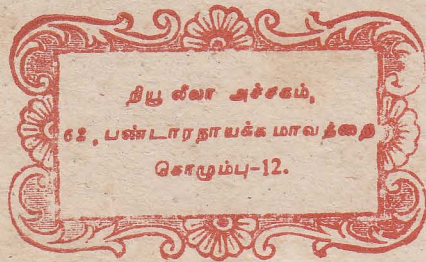 நியூ லீலா அச்சகம்,
62, பண்டாரநாயக்க மாவத்தை
கொழும்பு-12.